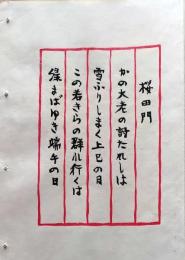 桜田門
かの大老の討たれしは
雪ふりしまく上巳の日
この若きらの群れ行くは
まばゆき端午の日